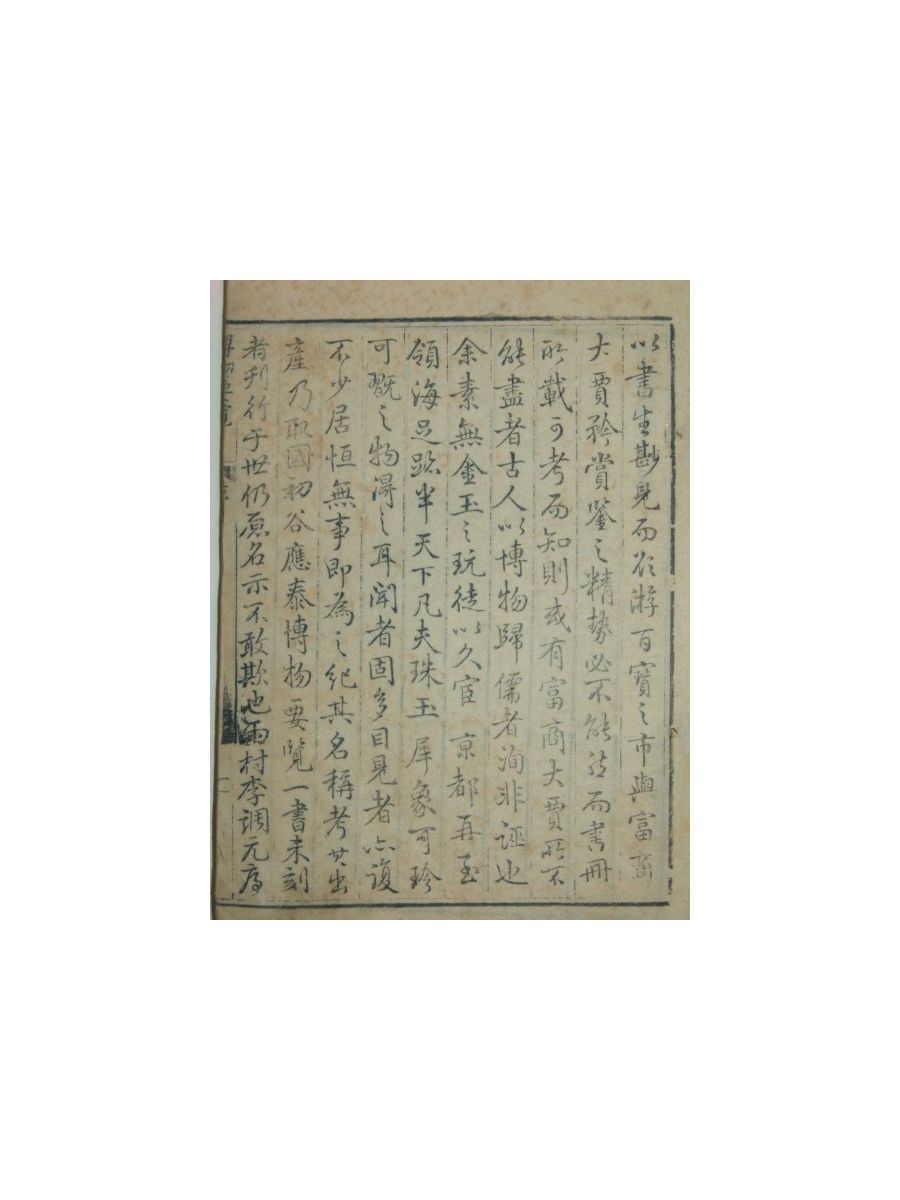 以書生尠見而欲游百寶之市與富商
大賈矜賞鉴之精勢必不能然而書冊
所載可考而知則或有富商大賈所不
能盡者古人以博物歸儒者洵非誣也
余素無金玉之玩徒以久宦京都再至
領海足跡半天下凡夫珠玉犀象可珍
可翫之物得之耳聞者固多目見者亦復
不少居恒無事即為之紀其名稱考其出
產乃取國初谷應泰博物要覽一書未刻
者刊行于世仍原名示不敢欺也雨村李調元序